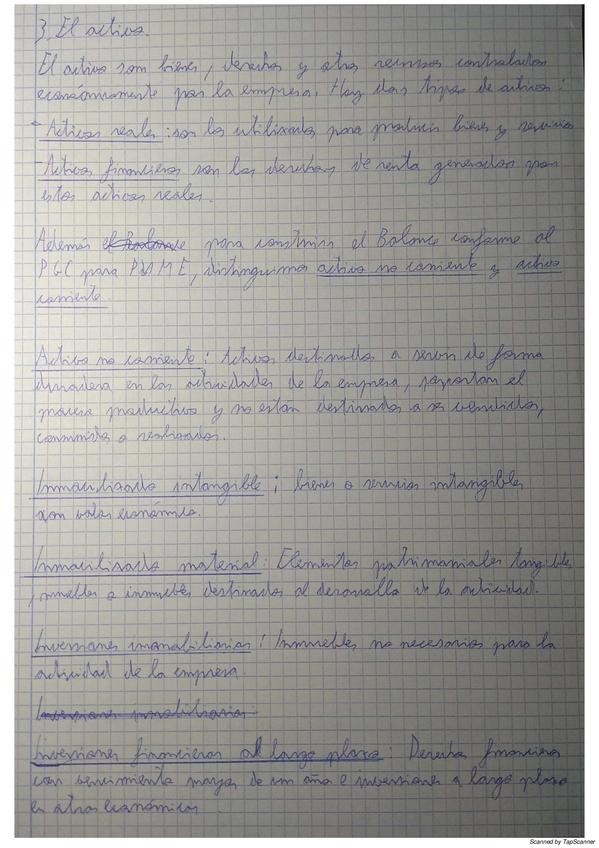 3. El activo.
El activo son bienes, derechos y otros recursos controlados
económicamente por la empresa. Hay dos tipos de activos:
- Activos reales: son los utilizados para producir bienes y servicios
- Activos financieros son los derechos de renta generados por
estos activos reales.
Además el Balance para construir el Balance conforme al
PGC para PYME, distinguimos activo no corriente y activo
corriente.
Activo no corriente: Activos destinados a servir de forma
duradera en las actividades de la empresa, soportan el
proceso productivo y no están destinados a ser vendidos,
consumidos o realizados.
Inmovilizado intangible: bienes o servicios intangibles
con valor económico.
Inmovilizado material: Elementos patrimoniales tangibles
, muebles o inmuebles destinados al desarrollo de la actividad.
Inversiones inmobiliarias: Inmuebles no necesarios para la
actividad de la empresa.
Inversiones inmobiliarias:
Inversiones financieras al largo plazo: Derechos financieros
con vencimiento mayor de un año e inversiones a largo plazo
en otros económicos.
Scanned by TapScanner